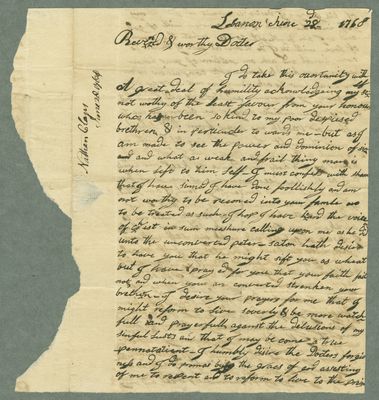 Lebanon June 28d 1768
Revrd & worthy Docter
I do take this oportunity with
A great deal of humility acknowledging my self
not worthy of the least favour from your honour
who has been so kind to my poor despiesd
brethren & in perticuler to wards me but as I
am made to see the power and dominion of sin
and and what a weak and frail thing man is
when left to him self I must confess with shame
that I have sined I have Done foollishly and am
not worthy to be reconed into your famile
to be treated as such I hop I have heard the voice
of Crist in sum measure calling upon me as he did
unto the unconverted peter saton hath desir
to have you that he might sift you as wheat
but I have prayed for you that your faith fail
not and when your are converted strenken your
brethren I desire your prayers for me that I
might reform to live soverly & be more watch
full and prayerfully against the delusions of my
sinfull Lusts and that I may be come a true
pennatentiant I humbly desire the Docters forgiv
ness and I do promis by the grace of god assisting
of me to repent and to reform to live to the
Nathan Claps
June 28d 1768